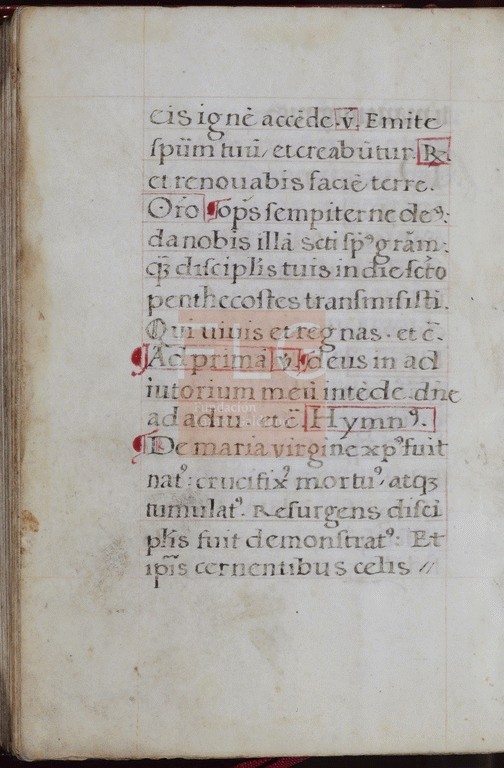 eis ignē accēde. ṽ. Emite
spūm tuū, et creabūtur. ℟
et renovabis faciē terre.
Orō ¶ ops̄ sempiterne deꝰ:
da nobis illā scti spꝰ grām:
q̄ȝ disciplis tuis in die scto
penthecostes transmisisti.
Qui vivis et regnas. et c̄.
¶ Ad primā ṽ. ¶ deus in ad
iutorium meū intēde. dne
ad adiu. et c̄. Hymnꝰ.
¶ De maria virgine xpꝰ fuit
natꝰ: crucifixꝰ mortuꝰ, atqȝ
tumulatꝰ. Resurgens disci
plis fuit demonstratꝰ: Et
ip̄is cernentibus celis //
Fundación